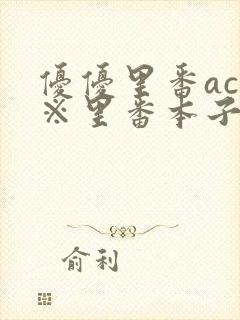 優優里番ac
※里番本子
俞利